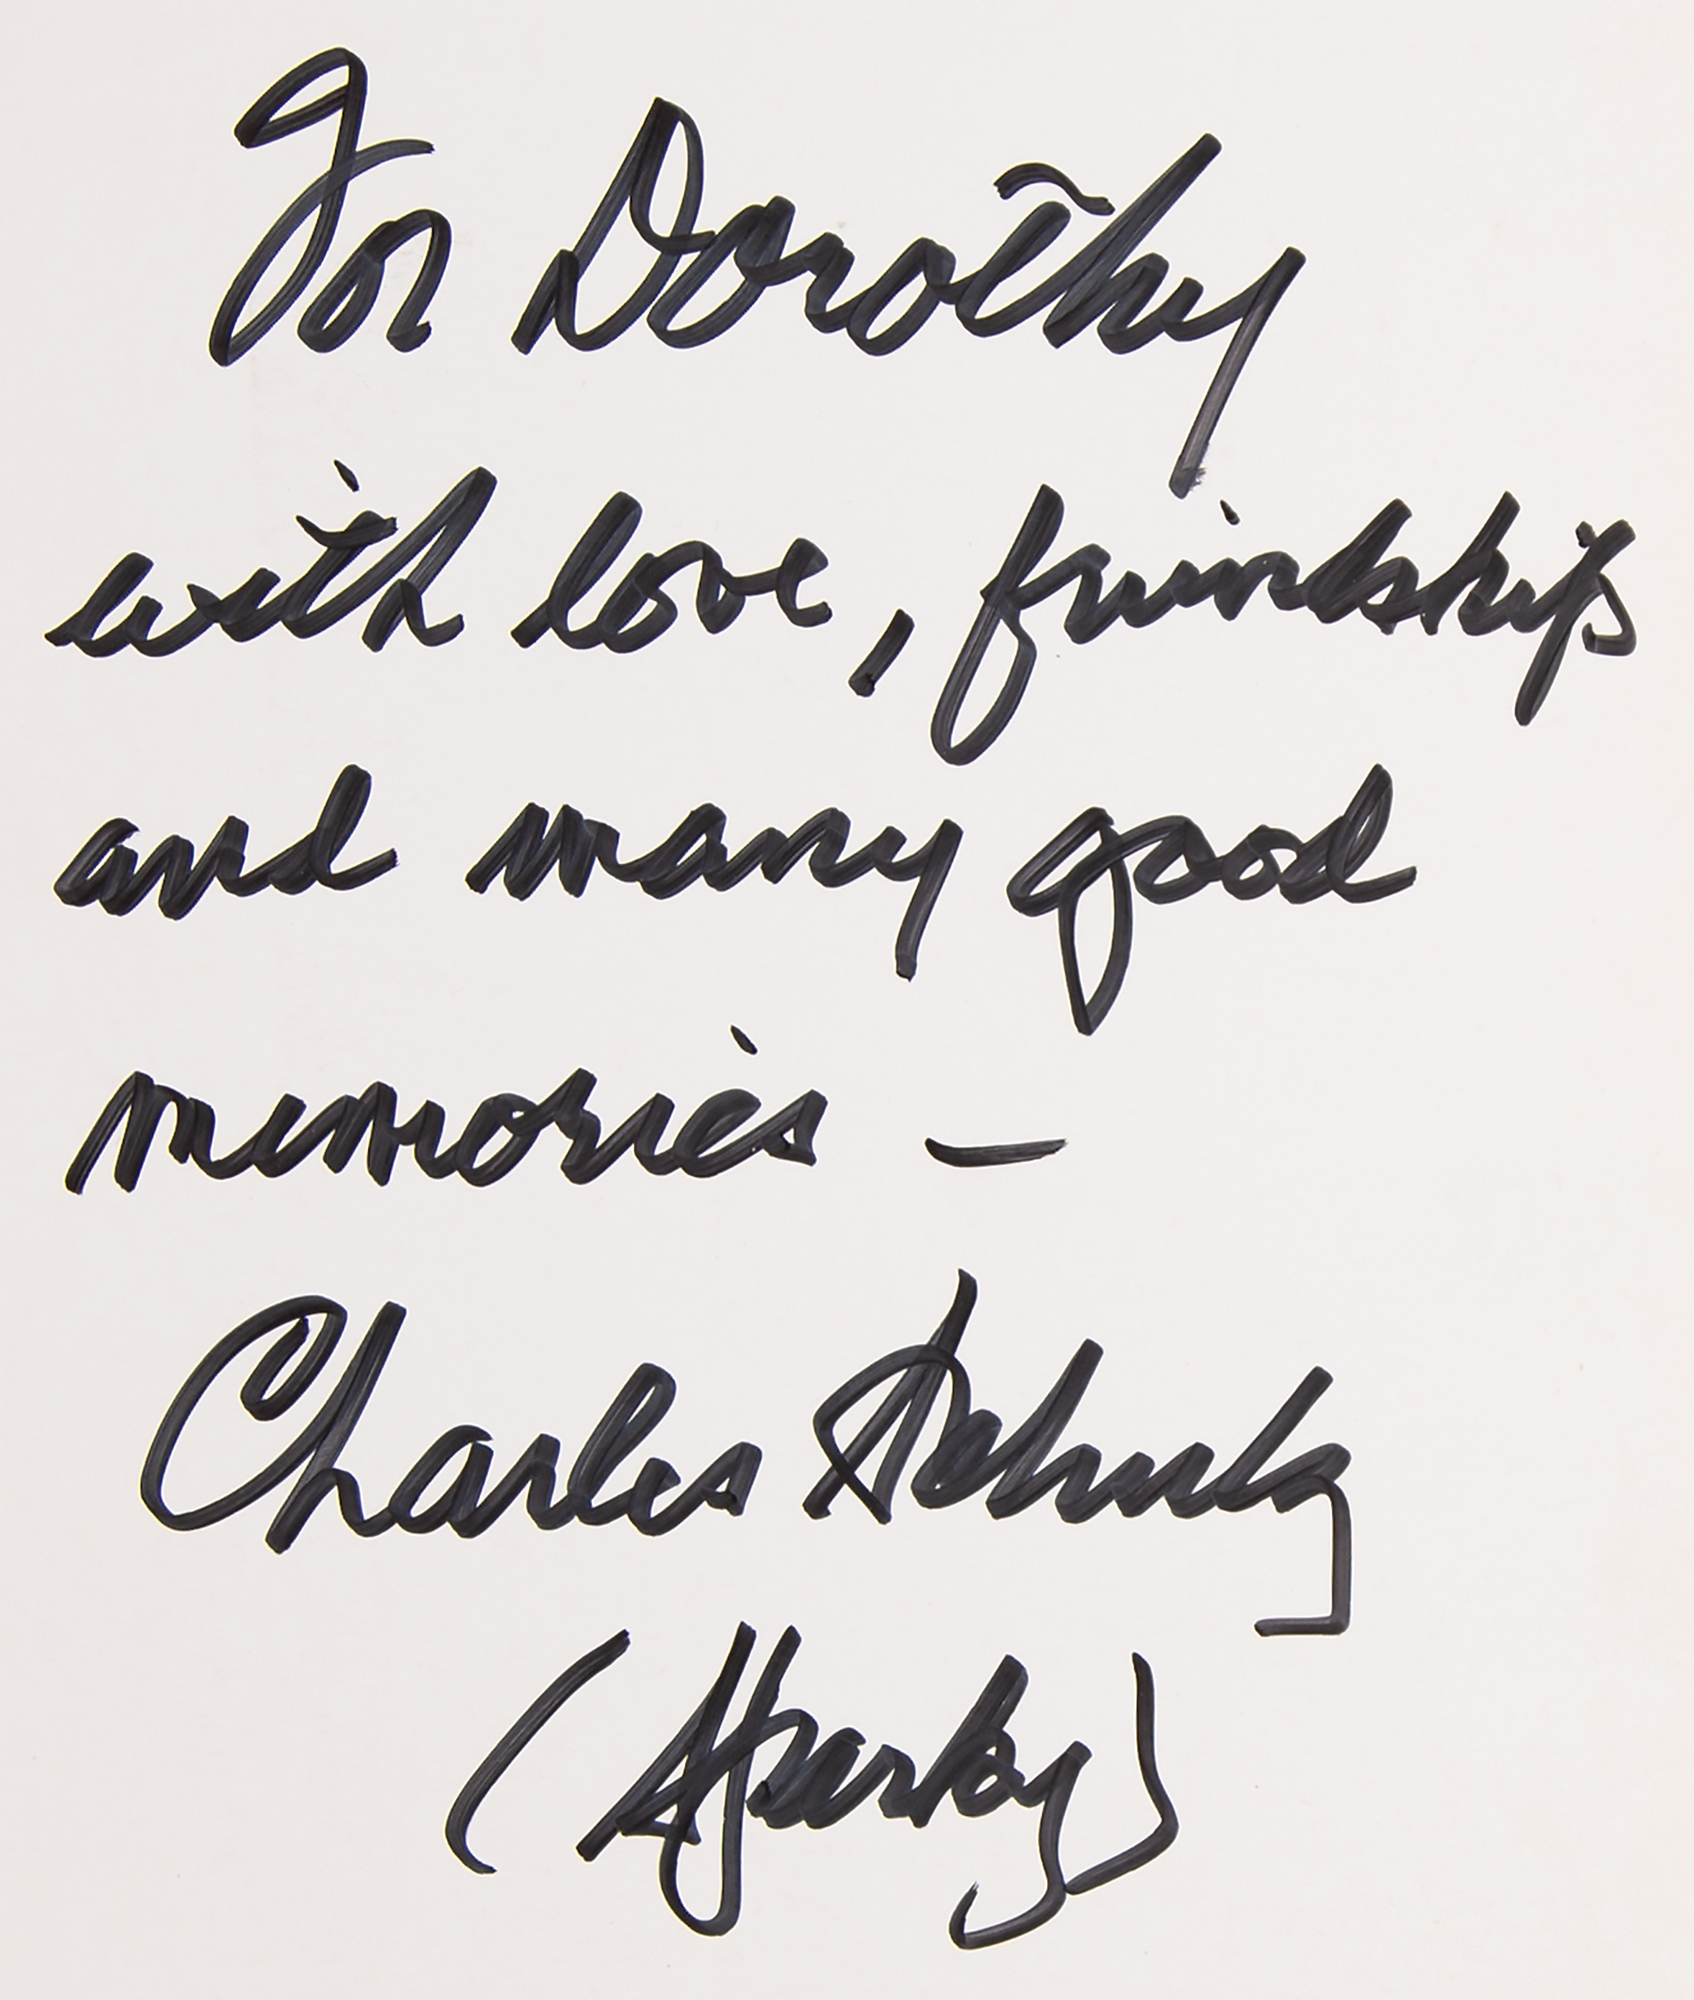 For Dorothy
with love, friendship
and many good
memories —
Charles Schulz
(Sparky)